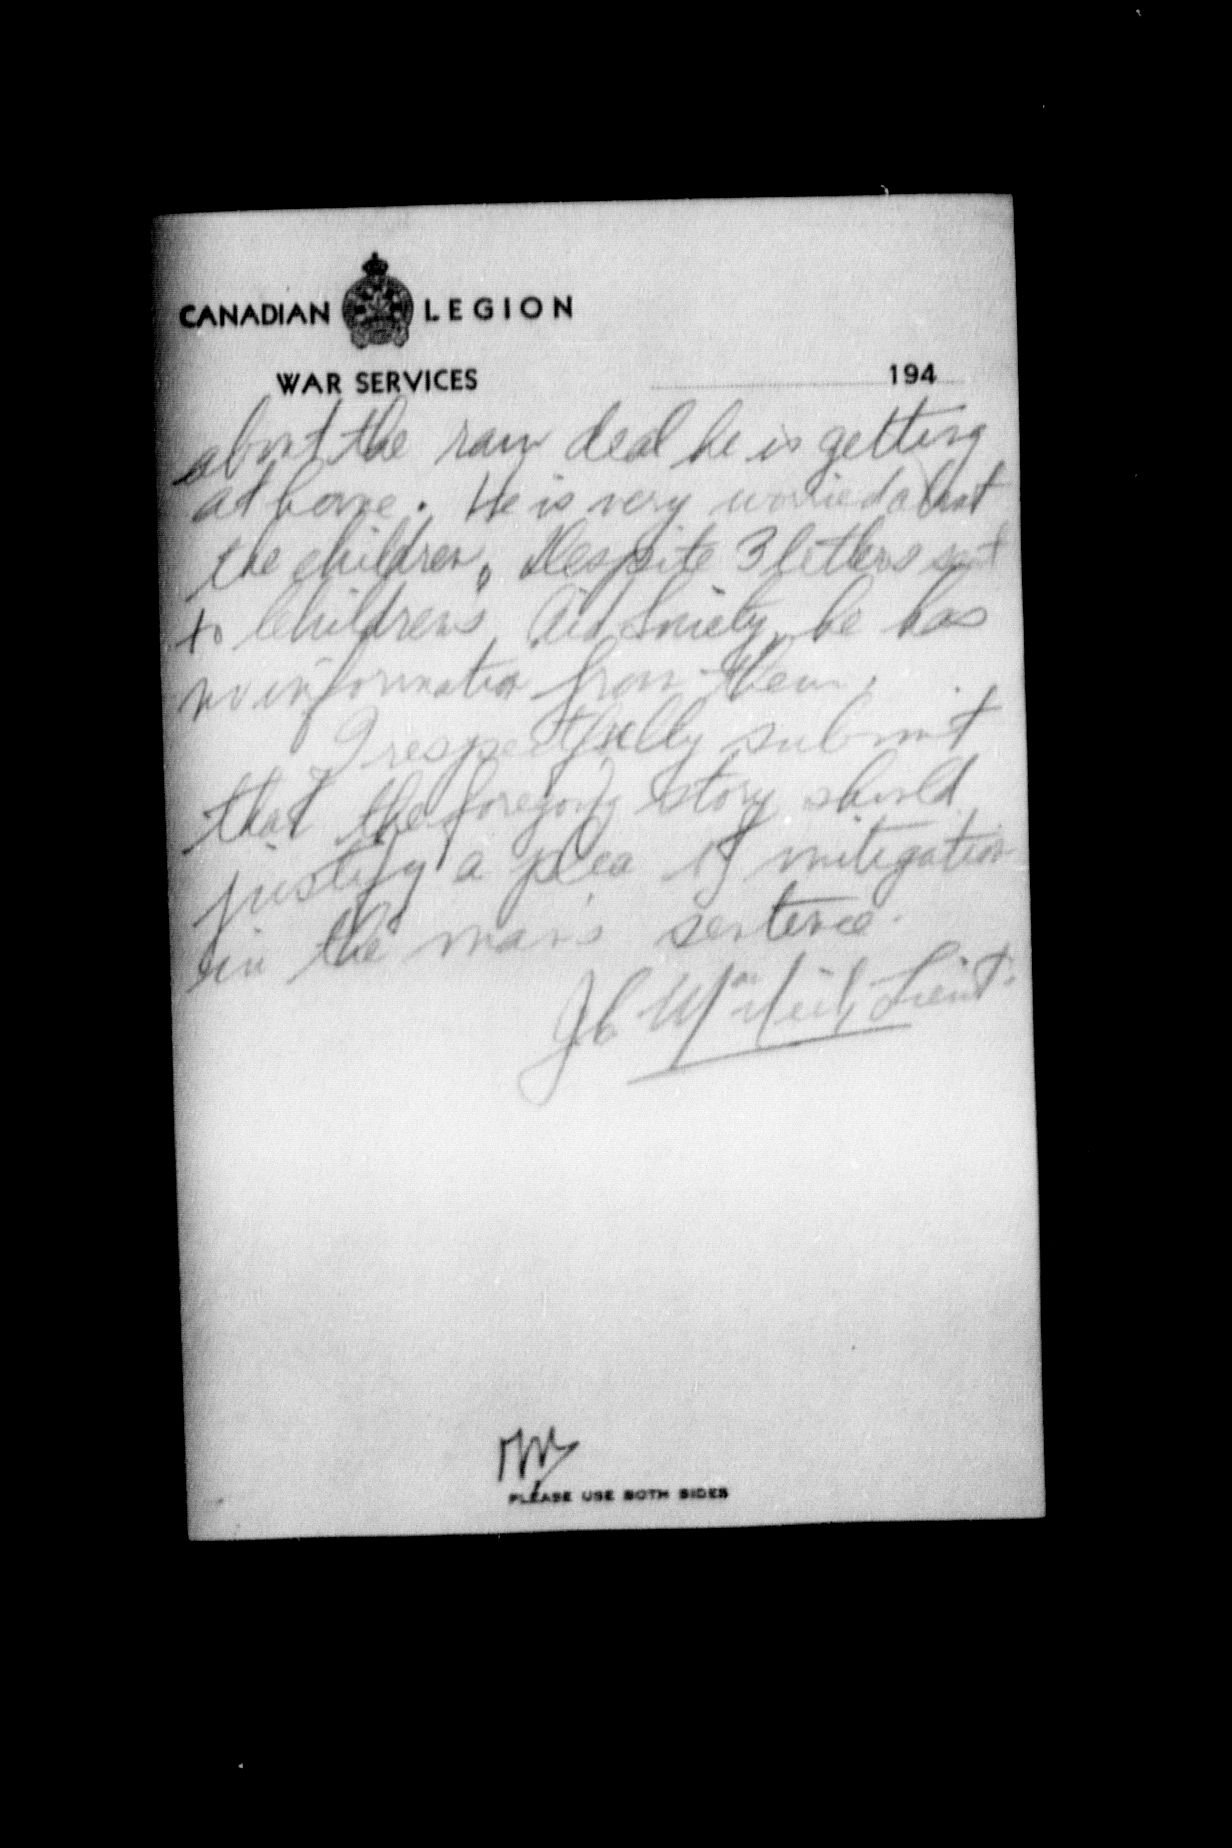 CANADIAN LEGION
WAR SERVICES
194
about the raw deal he is getting
at home. He is very worried about
the children. Despite 3 letters sent
to Childrens Aid Society, he has
no information from them.
I respectfully submit
that the foregoing story should
justify a plea of mitigation
in the man's sentence.
Lieut.
PLEASE USE BOTH SIDES